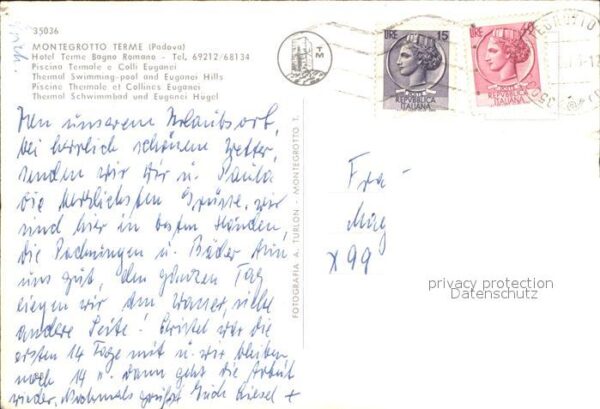 35036
MONTEGROTTO TERME (Padova)
Hotel Terme Bagno Romano - Tel. 69212/68134
Piscina Termale e Colli Euganei
Thermal Swimming-pool and Euganei Hills
Piscine Thermale et Collines Euganei
Thermal Schwimmbad und Euganei Hügel
Von unserem Urlaubsort,
bei herrlich schönem Wetter,
senden wir Dir u. Paula
die herzlichsten Grüsse, wir
sind hier in besten Händen,
die Packungen u. Bäder tun
uns gut, den ganzen Tag
liegen wir am Wasser, siehe
andere Seite! Christel war die
ersten 14 Tage mit u. wir bleiben
noch 14 u. dann geht die Arbeit
wieder. Nochmals grüßt Euch Liesel +
FOTOGRAFIA A. TURLON - MONTEGROTTO T.
TM
LIRE 15
POSTE
REPVBBLICA
ITALIANA
LIRE
POSTE
REPVBBLICA
ITALIANA
Fra-
May
x 99
privacy protection
Datenschutz